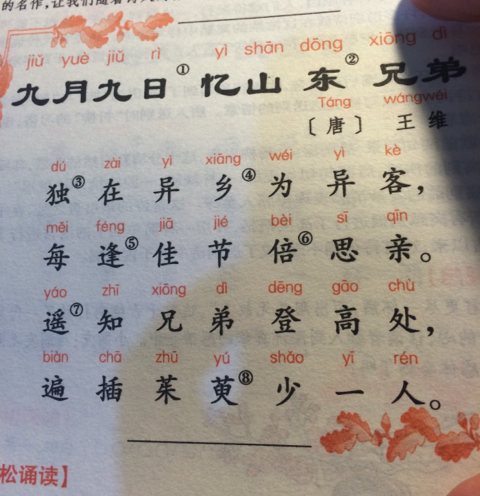 的名作,让我们随着诗人
jiǔ yuè jiǔ rì yì shān dōng xiōng dì
九月九日①忆山东②兄弟
Táng wángwéi
〔唐〕王维
dú zài yì xiāng wéi yì kè
独③在异乡④为异客,
měi féng jiā jié bèi sī qīn
每逢⑤佳节倍⑥思亲。
yáo zhī xiōng dì dēng gāo chù
遥⑦知兄弟登高处,
biàn chā zhū yú shǎo yī rén
遍插茱萸⑧少一人。
松诵读】